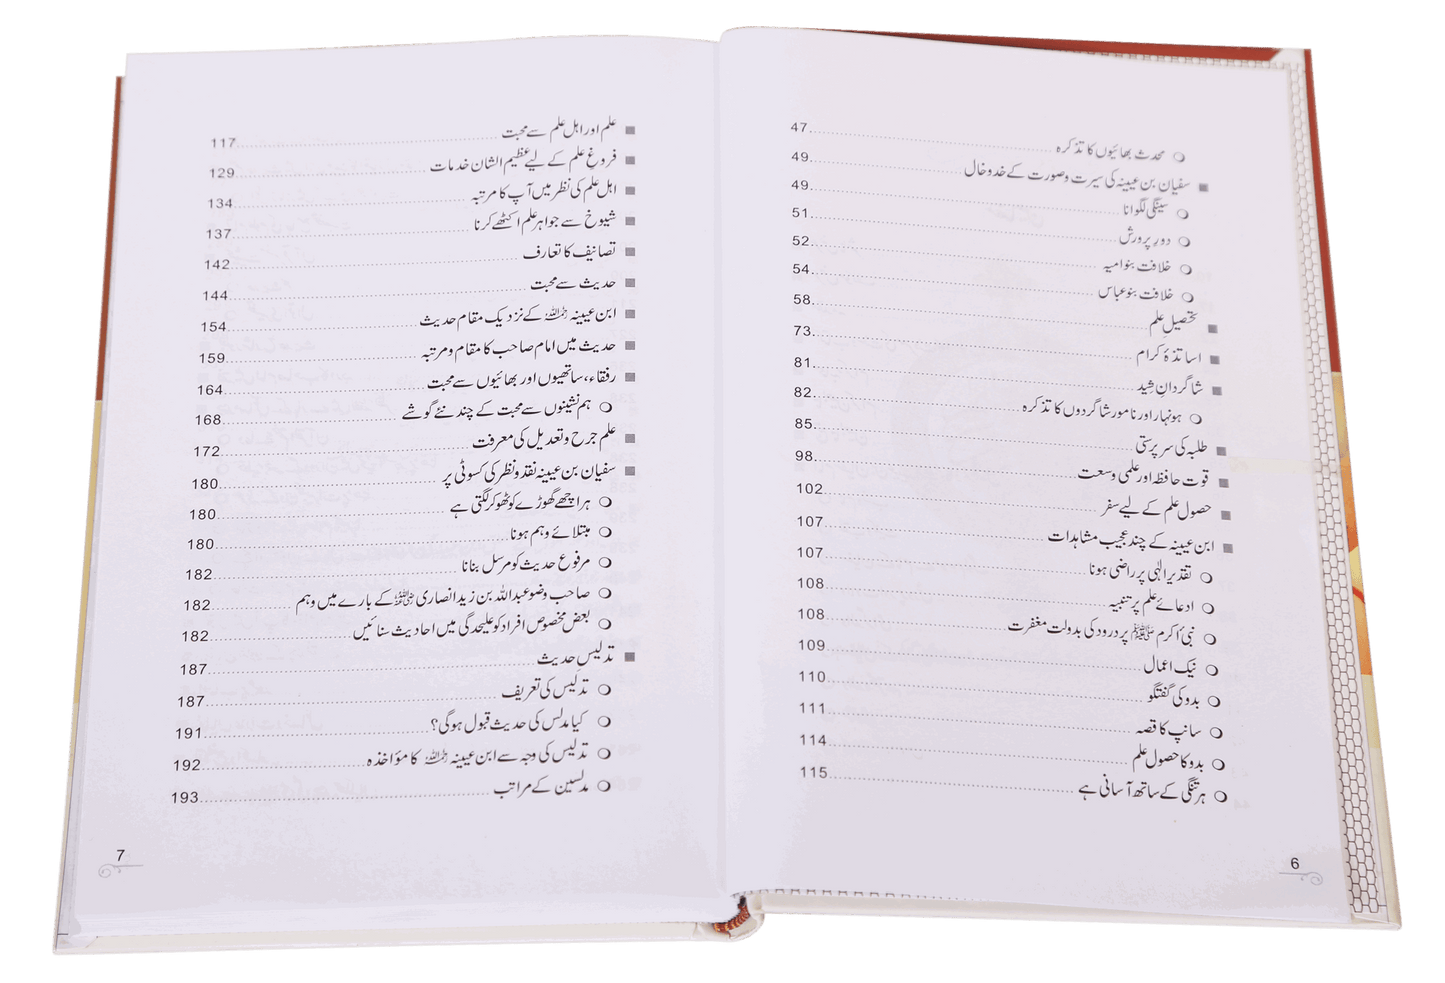 ○ محدث بھائیوں کا تذکرہ 47
■ سفیان بن عیینہ کی سیرت وصورت کے خدوخال 49
○ سینگی لگوانا 49
○ دورِ پرورش 51
○ خلافت بنوامیہ 52
○ خلافت بنوعباس 54
■ تحصیلِ علم 58
■ اساتذۂ کرام 73
■ شاگردانِ شید 81
○ ہونہار اور نامور شاگردوں کا تذکرہ 82
■ طلبہ کی سرپرستی 85
■ قوت حافظہ اور علمی وسعت 98
■ حصول علم کے لیے سفر 102
■ ابن عیینہ کے چند عجیب مشاہدات 107
○ تقدیرِ الٰہی پر راضی ہونا 107
○ ادعائے علم پر تنبیہ 108
○ نبی اکرم ﷺ پر درود کی بدولت مغفرت 108
○ نیک اعمال 109
○ بدو کی گفتگو 110
○ سانپ کا قصہ 111
○ بدو کا حصول علم 114
○ ہر تنگی کے ساتھ آسانی ہے 115
6
■ علم اور اہل علم سے محبت 117
■ فروغِ علم کے لیے عظیم الشان خدمات 129
■ اہل علم کی نظر میں آپ کا مرتبہ 134
■ شیوخ سے جواہر علم اکٹھے کرنا 137
■ تصانیف کا تعارف 142
■ حدیث سے محبت 144
■ ابن عیینہ رحمہ اللہ کے نزدیک مقام حدیث 154
■ حدیث میں امام صاحب کا مقام ومرتبہ 159
■ رفقاء، ساتھیوں اور بھائیوں سے محبت 164
○ ہم نشینوں سے محبت کے چند نئے گوشے 168
■ علم جرح وتعدیل کی معرفت 172
■ سفیان بن عیینہ نقد ونظر کی کسوٹی پر 180
○ ہر اچھے گھوڑے کو ٹھوکر لگتی ہے 180
○ مبتلائے وہم ہونا 180
○ مرفوع حدیث کو مرسل بنانا 182
○ صاحب وضو عبداللہ بن زید انصاری رضی اللہ عنہ کے بارے میں وہم 182
○ بعض مخصوص افراد کو علیحدگی میں احادیث سنائیں 182
■ تدلیسِ حدیث 187
○ تدلیس کی تعریف 187
○ کیا مدلس کی حدیث قبول ہوگی؟ 191
○ تدلیس کی وجہ سے ابن عیینہ رحمہ اللہ کا مؤاخذہ 192
○ مدلسین کے مراتب 193
7